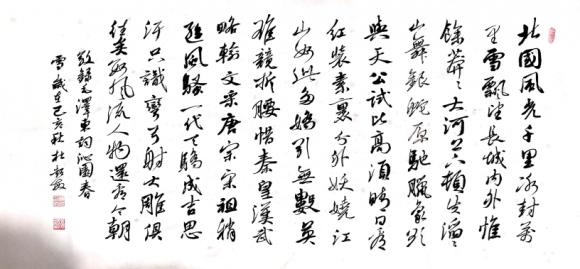 北國風光千里冰封萬
里雪飄望長城内外惟
餘莽莽大河上下頓失滔滔
山舞銀蛇原馳臘象欲
與天公試比高須晴日看
紅裝素裹分外妖嬈江
山如此多嬌引無數英
雄競折腰惜秦皇漢武
略輸文采唐宗宋祖稍
遜風騷一代天驕成吉思
汗只識彎弓射大雕俱
往矣數風流人物還看今朝
敬錄毛澤東詞沁園春
雪歲在己亥秋杜